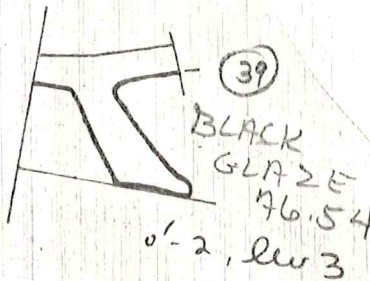 39
BLACK
GLAZE
76.54
o'-2, lev 3